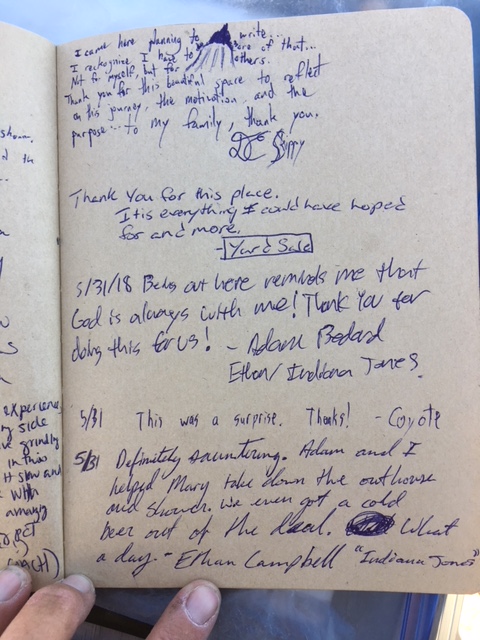 I came here planning to write...
I reckognize I have to  are of that...
Not for myself, but for others.
Thank you for this beautiful space to reflect
on this journey, the motivation and the
purpose... to my family, thank you.
DC Skippy
Thank You for this place.
It is everything I could have hoped
for and more.
- Yard Sale
5/31/18 Being out here reminds me that
God is always with me! Thank You for
doing this for us! - Adam Bedard
Ethan/Indiana Jones
5/31 This was a surprise. Thanks! - Coyote
5/31 Definitely sauntering. Adam and I
helped Mary take down the outhouse
and shower. We even got a cold
beer out of the deal. What
a day. - Ethan Campbell "Indiana Jones"
experience
my side
grindly
in this
it slow and
with
amazing